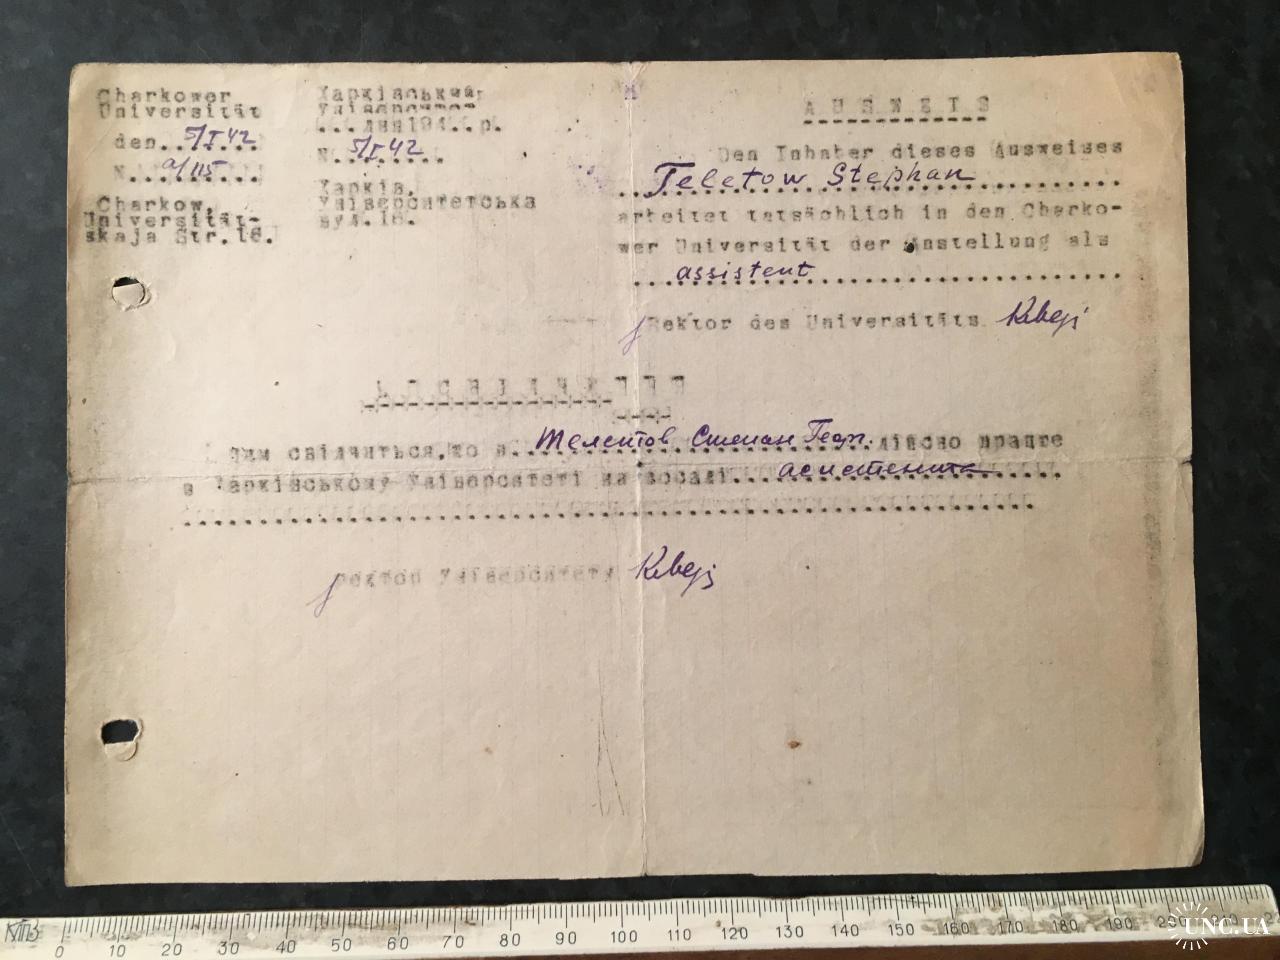 Charkower
Universität
den..5/I 42...
N...a/115....
Charkow,
Universität-
skaja Str.16.
Харківський
Університет
...дня194...р.
N..5/I 42.....
Харків,
Університетська
вул.16.
AUSWEIS
Den Inhaber dieses Ausweises
Teletow Stephan
arbeitet tatsächlich in den Charko-
wer Universität der Anstellung als
assistent
Rektor des Universitäts
Цим свідчиться, що п. Телетов Степан Георг. дійсно працює
в Харківському Університеті на посаді асистента
ректор Університету
0 10 20 30 40 50 60 70 80 90 100 110 120 130 140 150 160 170 180 190 200 210
UNC.UA